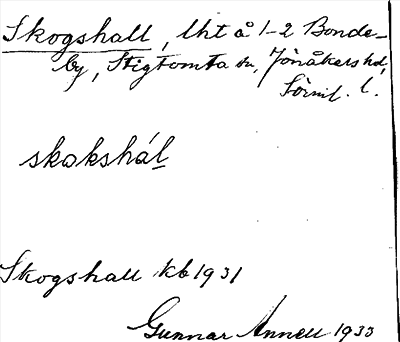 Skogshall, lht å 1-2 Bonde-
by, Stigtomta sn, Jönåkers hd,
Sörml. l.
skokshál
Skogshall kb 1931
Gunnar Annell 1933